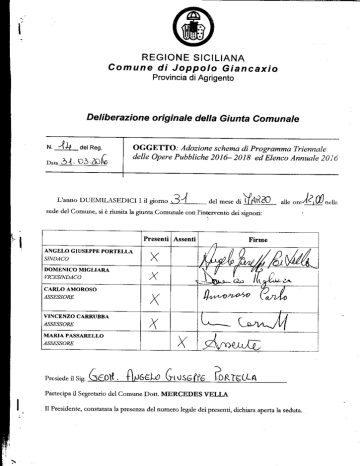 REGIONE SICILIANA
Comune di Joppolo Giancaxio
Provincia di Agrigento
Deliberazione originale della Giunta Comunale
N. 14 del Reg.
Data 31.03.2016
OGGETTO: Adozione schema di Programma Triennale
delle Opere Pubbliche 2016– 2018 ed Elenco Annuale 2016
L'anno DUEMILASEDICI I il giorno 31 del mese di MARZO alle ore 12,00 nella
sede del Comune, si è riunita la giunta Comunale con l'intervento dei signori:
Presenti Assenti Firme
ANGELO GIUSEPPE PORTELLA
SINDACO X Angelo Giuseppe Portella
DOMENICO MIGLIARA
VICESINDACO X Domenico Migliara
CARLO AMOROSO
ASSESSORE X Amoroso Carlo
VINCENZO CARRUBBA
ASSESSORE X
MARIA PASSARELLO
ASSESSORE X Assente
Presiede il Sig. GEOM. ANGELO GIUSEPPE PORTELLA
Partecipa il Segretario del Comune Dott. MERCEDES VELLA
Il Presidente, constatata la presenza del numero legale dei presenti, dichiara aperta la seduta.